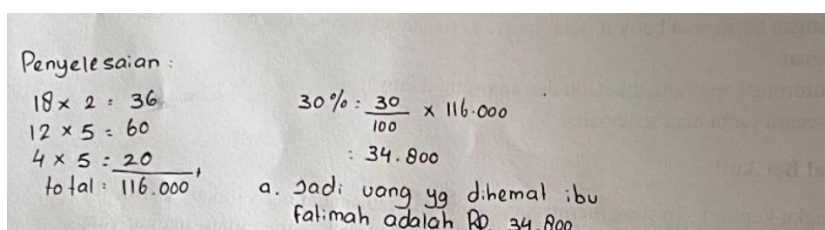 Penyelesaian :
18 x 2 = 36
12 x 5 = 60
4 x 5 = 20
total = 116.000
30% : 30/100 x 116.000
: 34.800
a. Jadi uang yg dihemat ibu
fatimah adalah Rp. 34.800